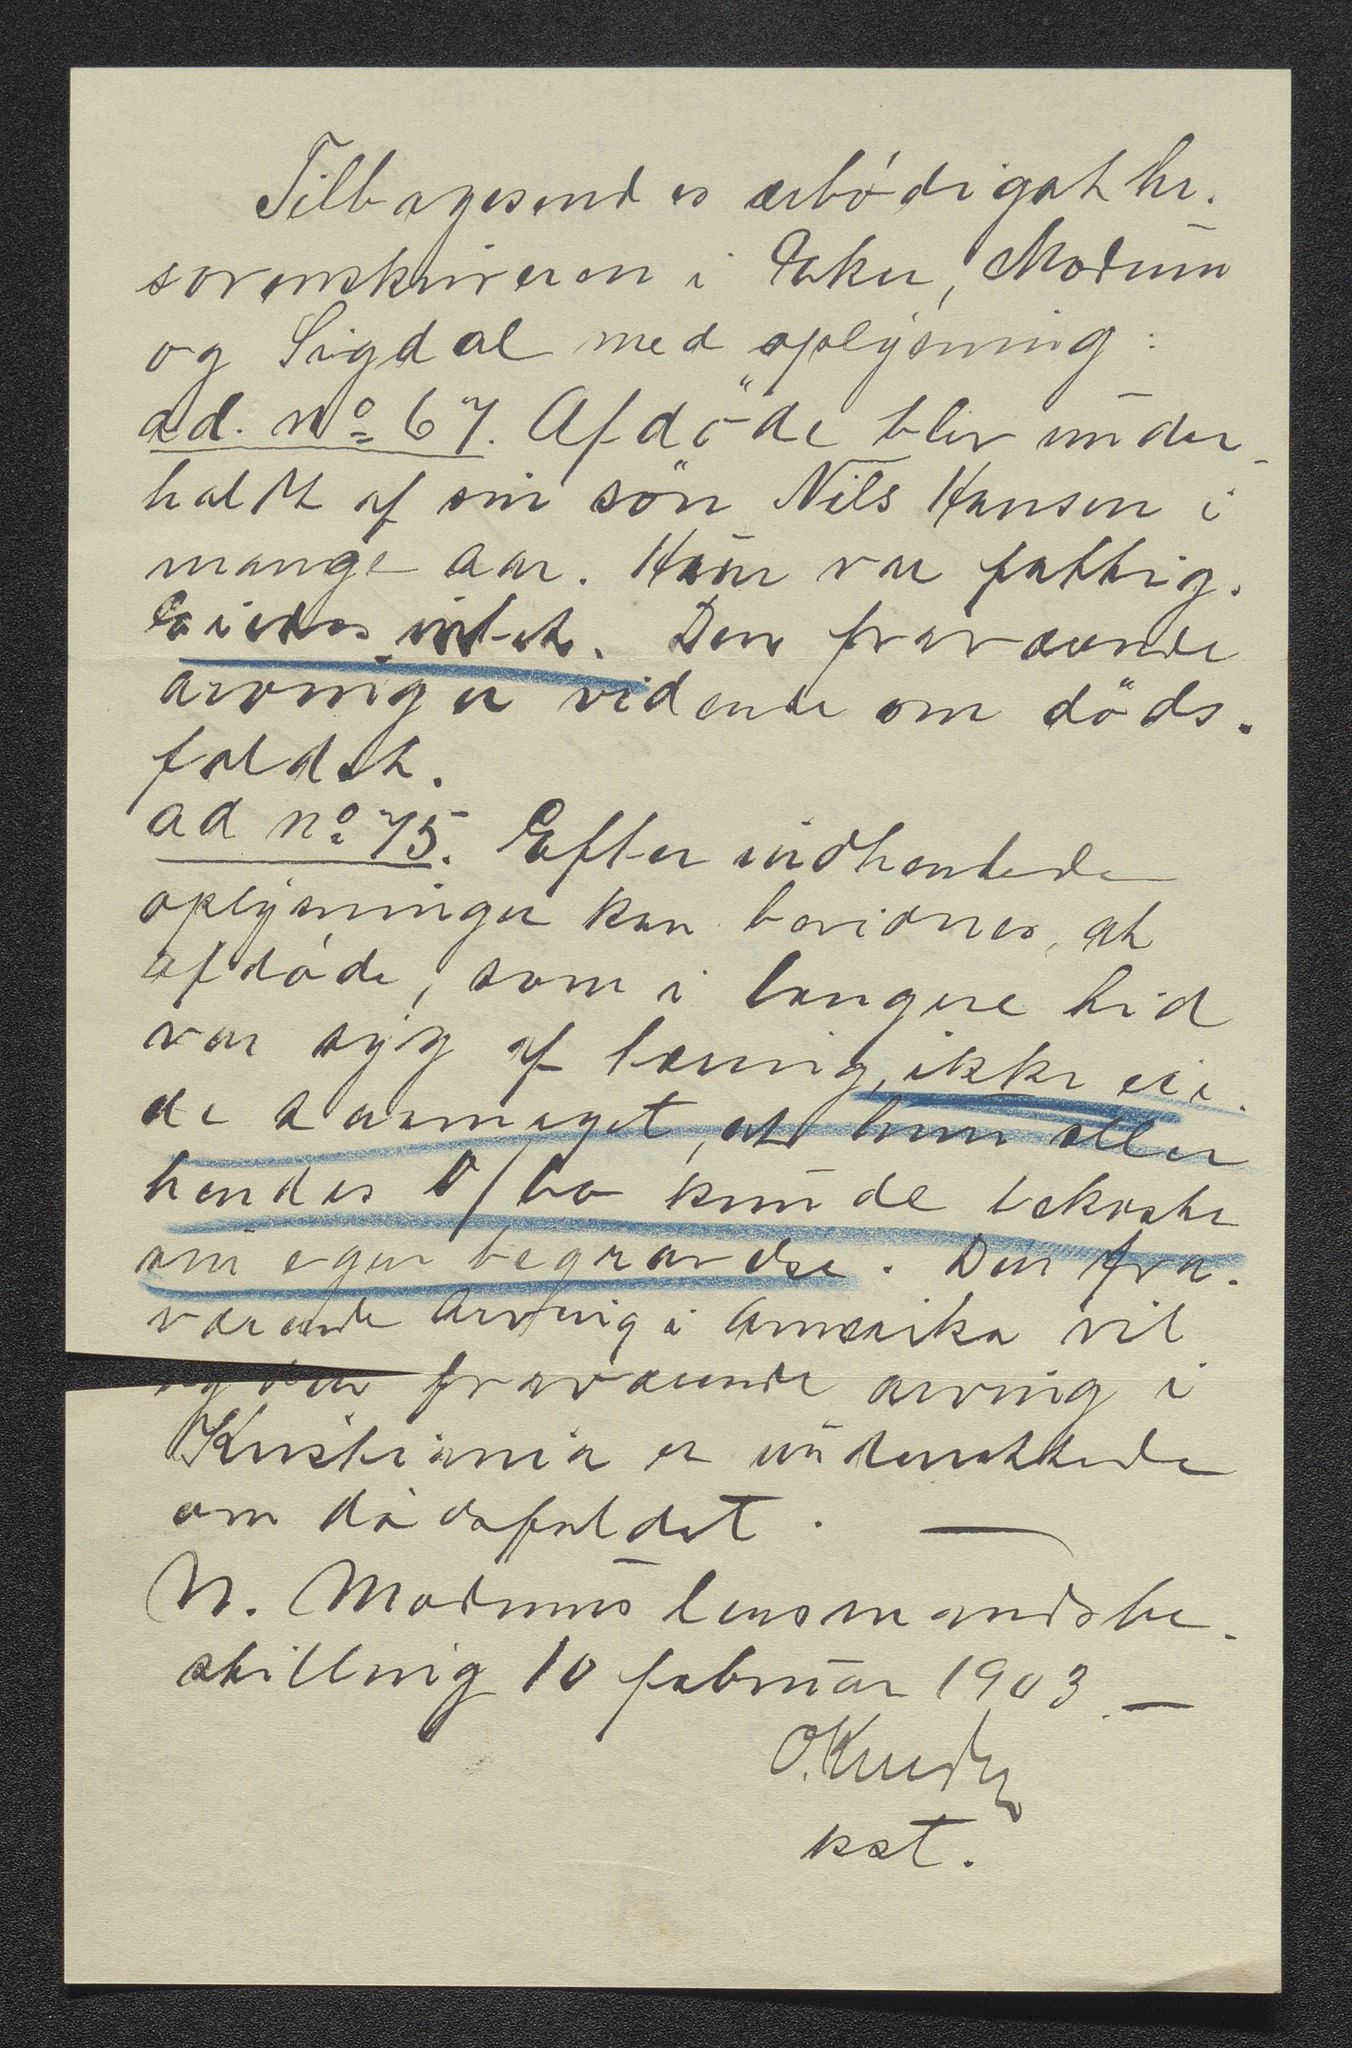 Tilbagesendes ærbödigst hr.
sorenskriveren i Eker, Modum
og Sigdal med oplysning:
ad. No 67. Afdöde blev under-
holdt af sin sön Nils Hansen i
mange aar. Han var fattig.
Eiedes intet. Den fraværende
arvinger vidende om döds-
faldet.
ad No 75. Efter indhentede
oplysninger kan bevidnes, at
afdöde, som i længere tid
var syg af tæring, ikke eie-
de saameget, at hun eller
hendes D/bo kunde bekoste
sin egen begravelse. Den fra-
værende arving i Amerika vil
og den fraværende arving i
Kristiania er underrettede
om dödsfaldet. —
N. Modums lensmandsbe-
stilling 10 februar 1903 —
kst.